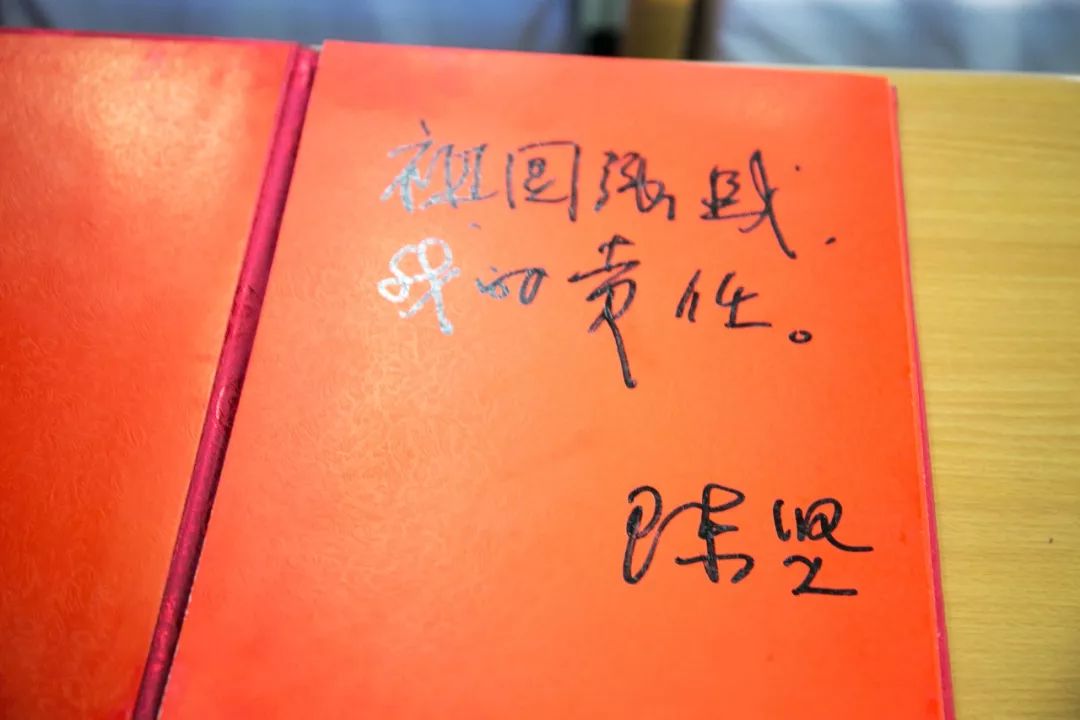 祖国强盛,
我的责任。
陈坚